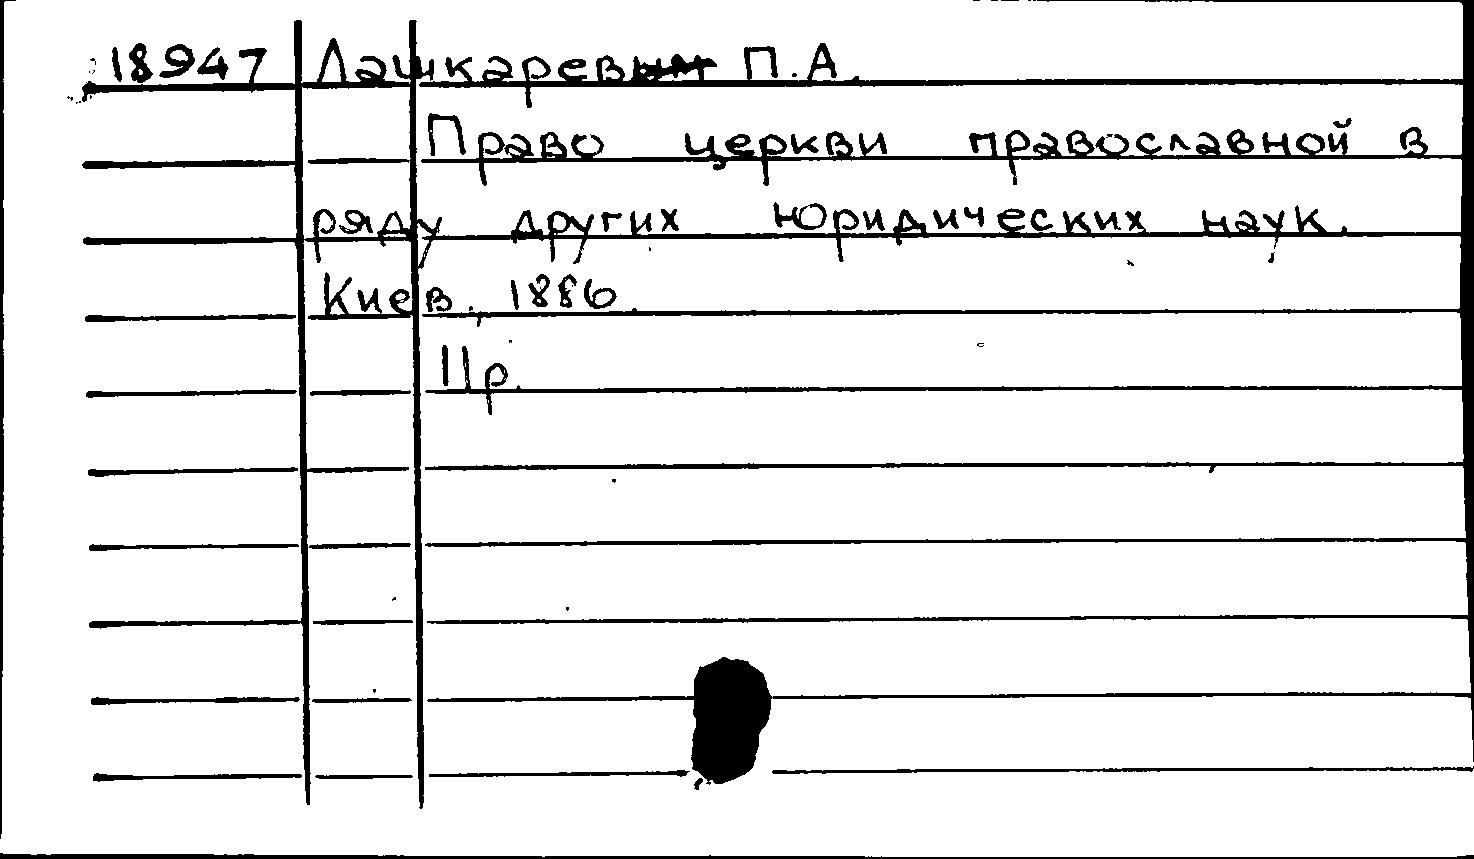 18947 Лашкарев П.А.
Право церкви православной в
ряду других юридических наук.
Киев, 1886.
11р.